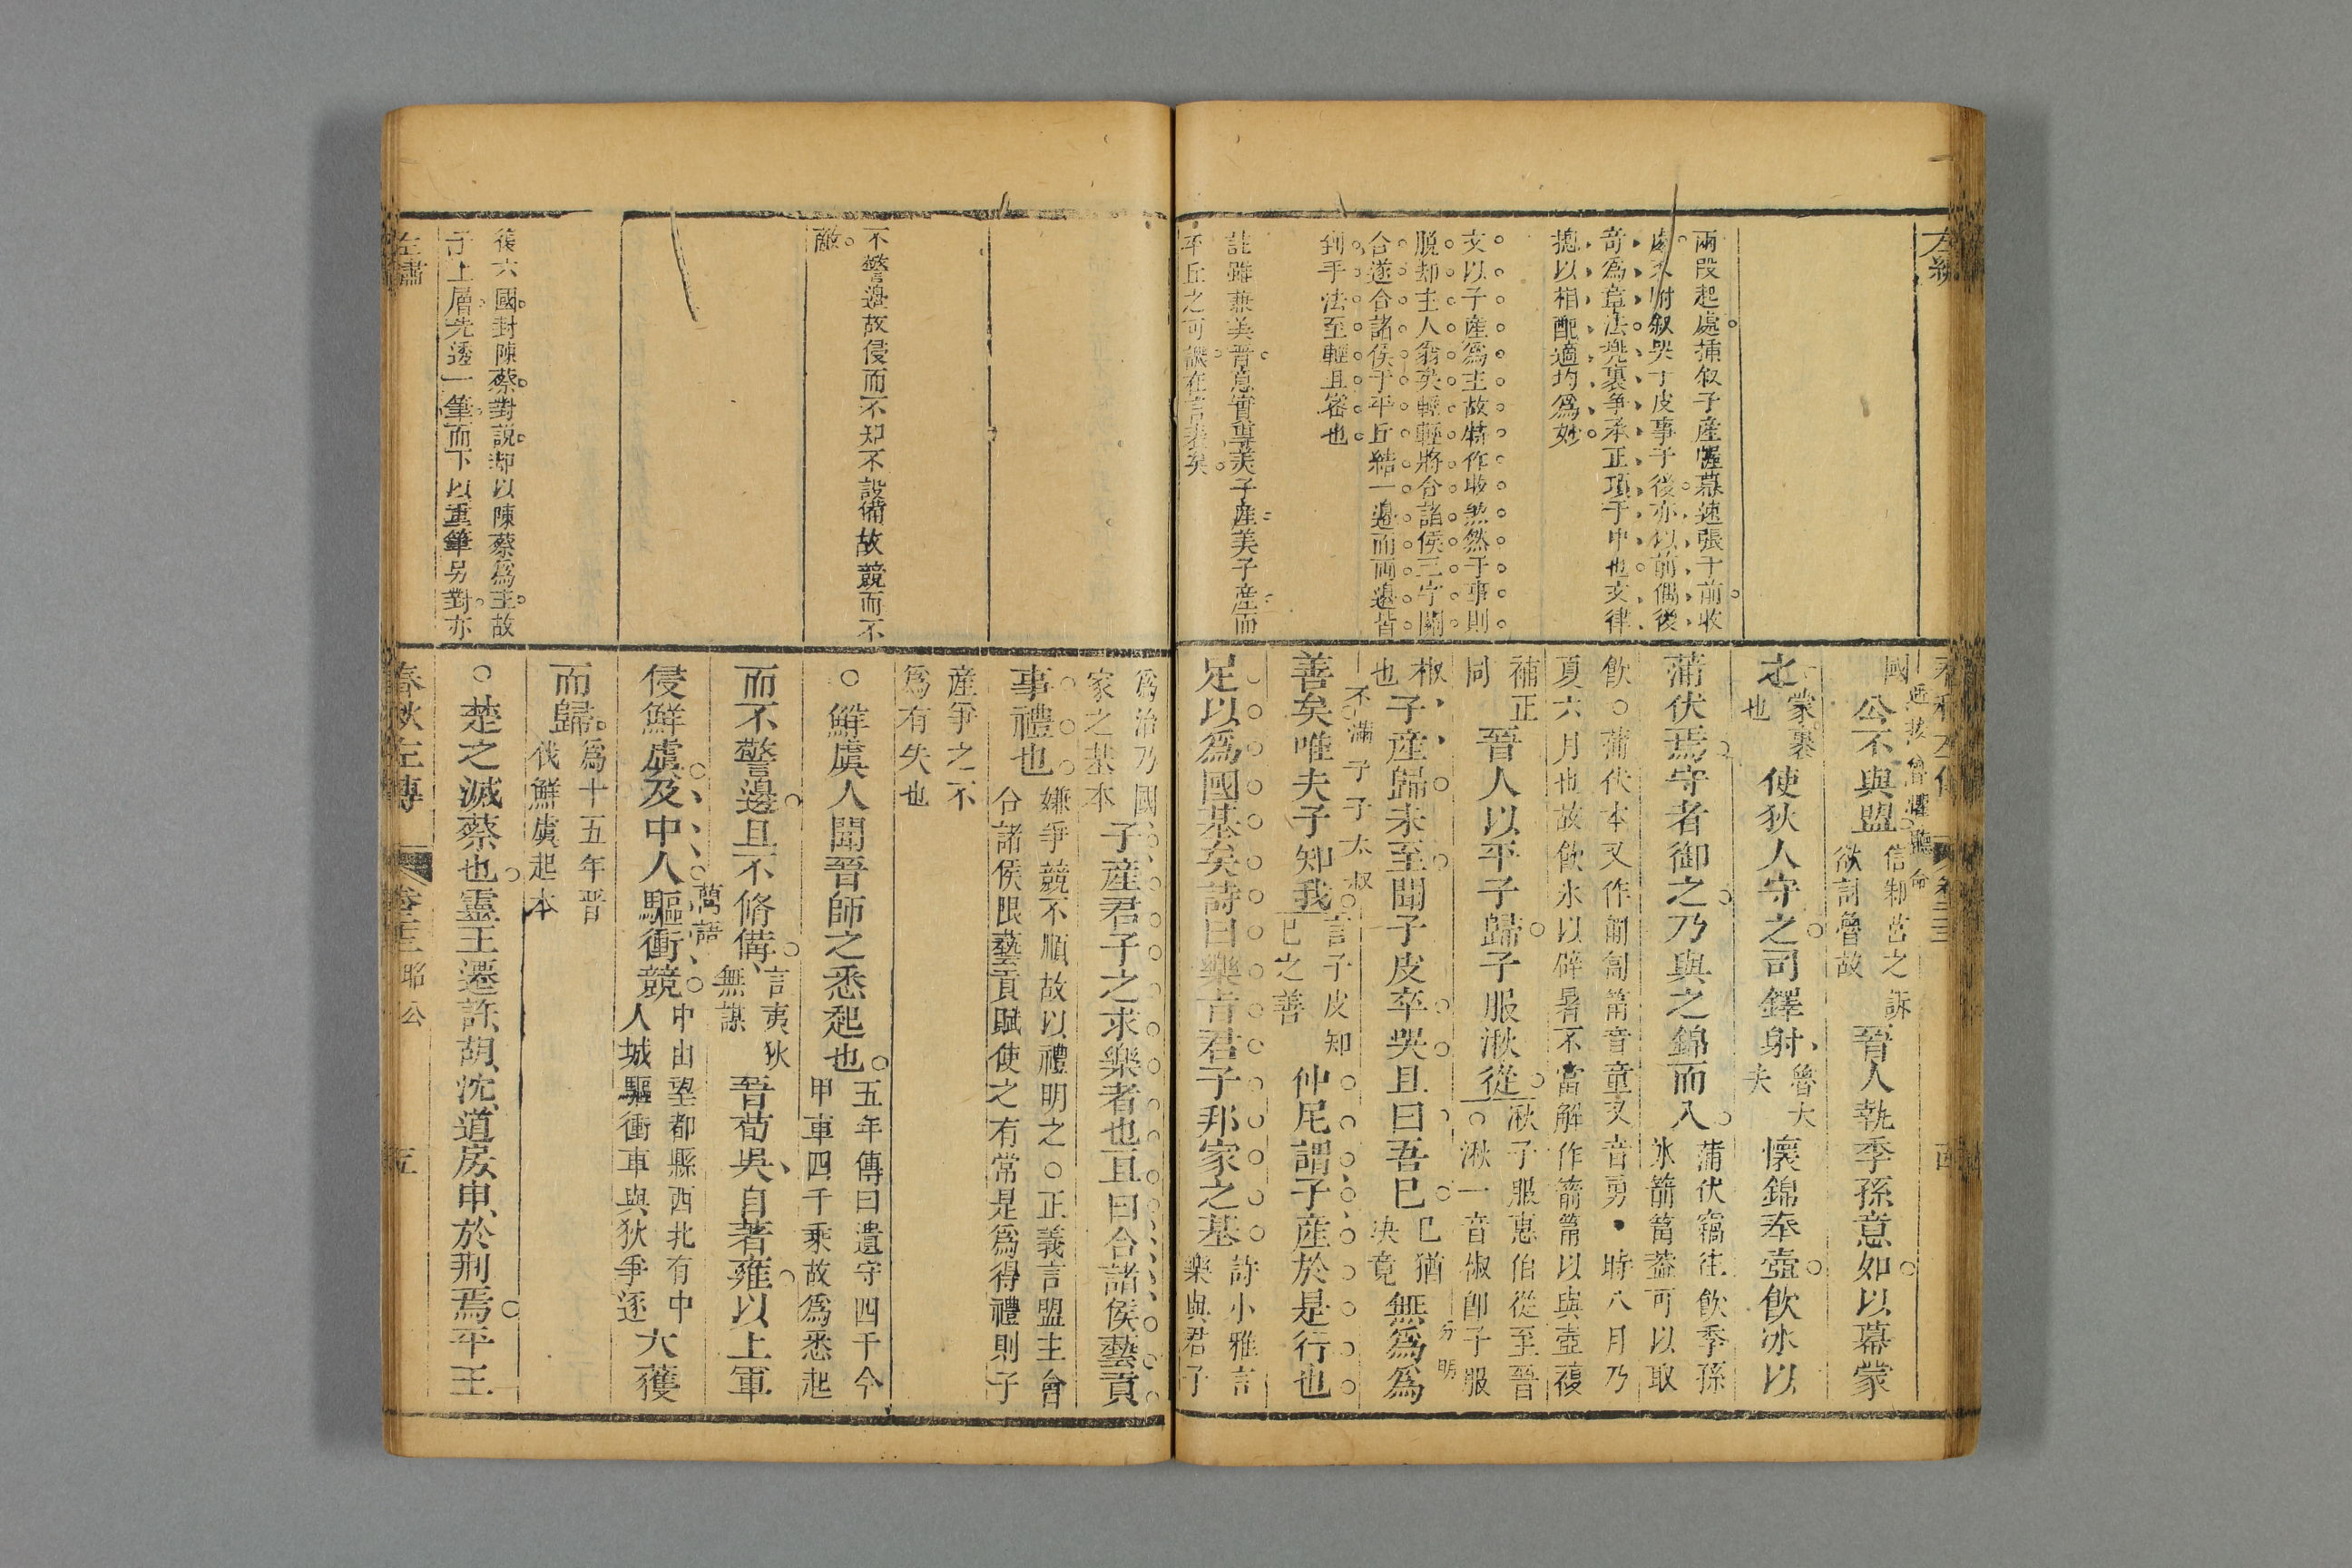 兩段起處揷叙子產幄幕速張于前收
處又附叙哭子皮事于後亦以前偶後
奇爲章法兠裏爭承正項于中也文律
摠以相配適均爲妙
文以子産爲主故特作收煞然于事則
脱却主人翁矣輕輕將合諸侯三字關
合遂合諸侯于平丘結一邊而兩邊皆
到手法至輕且密也
註雖兼美晋意實專美子産美子産而
平丘之可譏在言表矣
國
公不與盟
信邾莒之訴
欲討魯故
晉人執季孫意如以幕蒙
之
蒙裹
也
使狄人守之司鐸射
魯大
夫
懷錦奉壺飮冰以
蒲伏焉守者御之乃與之錦而入
蒲伏竊往飮季孫
冰箭筩葢可以取
飮○蒲伏本又作匍匐筩音童又音勇・時八月乃
夏六月也故飮氷以辟暑不當解作箭筩以與壺複
補正
同
晉人以平子歸子服湫從
湫子服惠伯從至晉
○湫一音椒卽子服
椒
也
子産歸未至聞子皮卒哭且曰吾已
已猶
决竟
無爲爲
分明
善矣唯夫子知我
不滿子子太叔
言子皮知
己之善
仲尼謂子産於是行也
足以爲國基矣詩曰樂旨君子邦家之基
詩小雅言
樂與君子
爲治乃國
家之基本
子産君子之求樂者也且曰合諸侯藝貢
事禮也
嫌爭競不順故以禮明之○正義言盟主會
合諸侯限藝貢賦使之有常是爲得禮則子
産爭之不
爲有失也
不警邊故侵而不知不設備故競而不
敵
○鮮虞人聞晉師之悉起也
五年傳曰遺守四千今
甲車四千乘故爲悉起
而不警邊且不脩備
言夷狄
無謀
晉荀吳自著雍以上軍
侵鮮虞及中人驅衝競
中山望都縣西北有中
人城驅衝車與狄爭逐
大獲
而歸
爲十五年晋
伐鮮虞起本
後六國封陳蔡對説却以陳蔡爲主故
于上層先透一筆而下以重筆另對亦
○楚之滅蔡也靈王遷許胡沈道房申於荆焉平王
左繡
春秋左傳
昭公